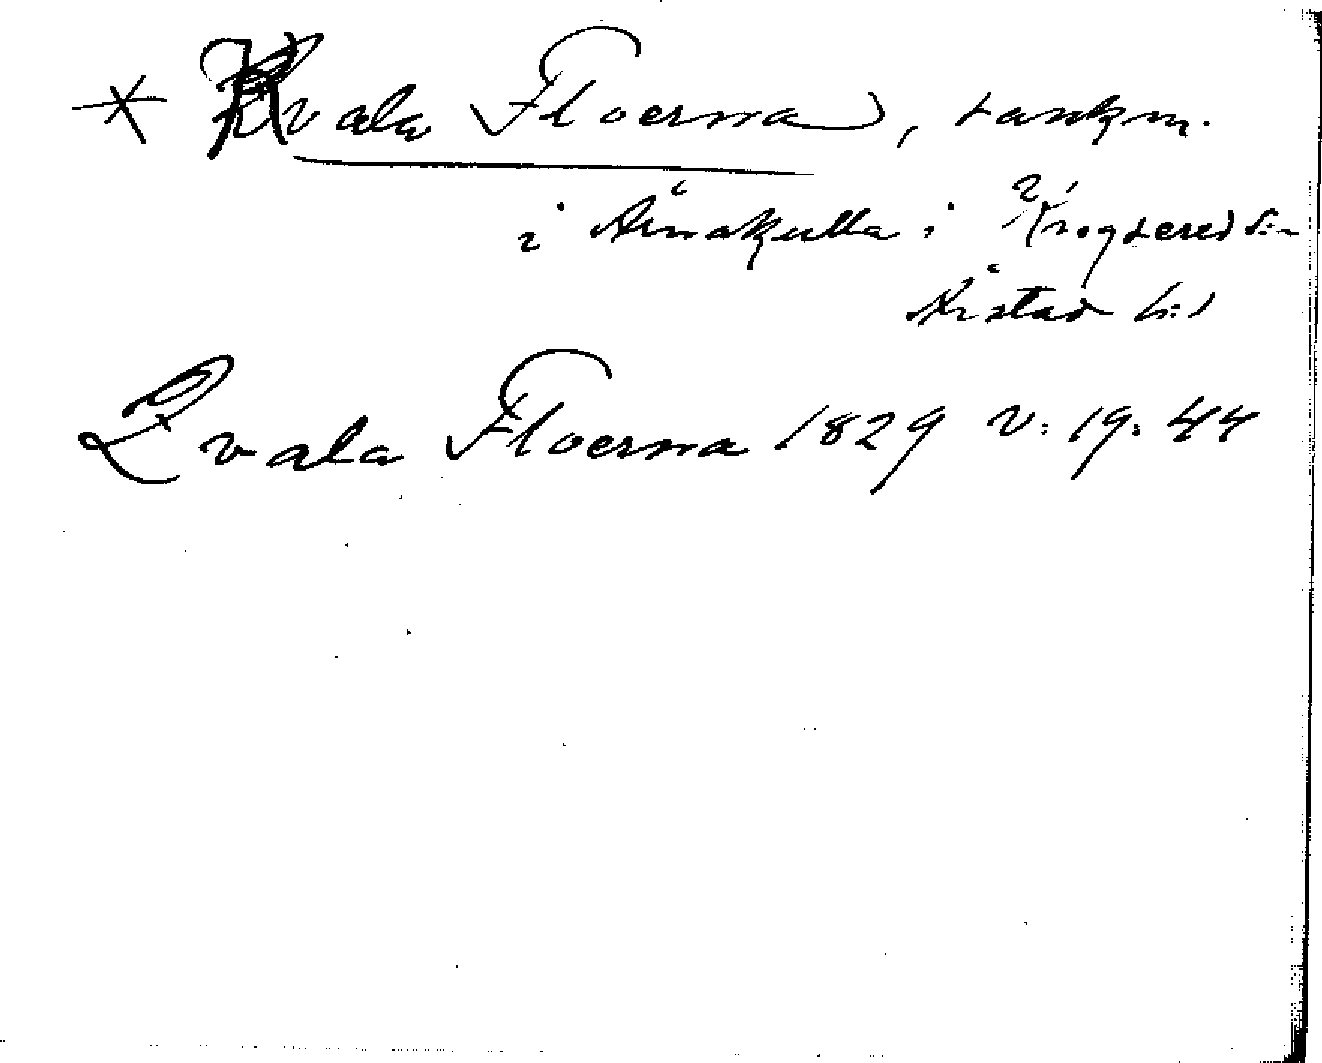 * Kvala Floerna, tankm.
i Årnakulla i Krogsered sn
Årstad hd
Qvala Floerna 1829 V: 19. 44